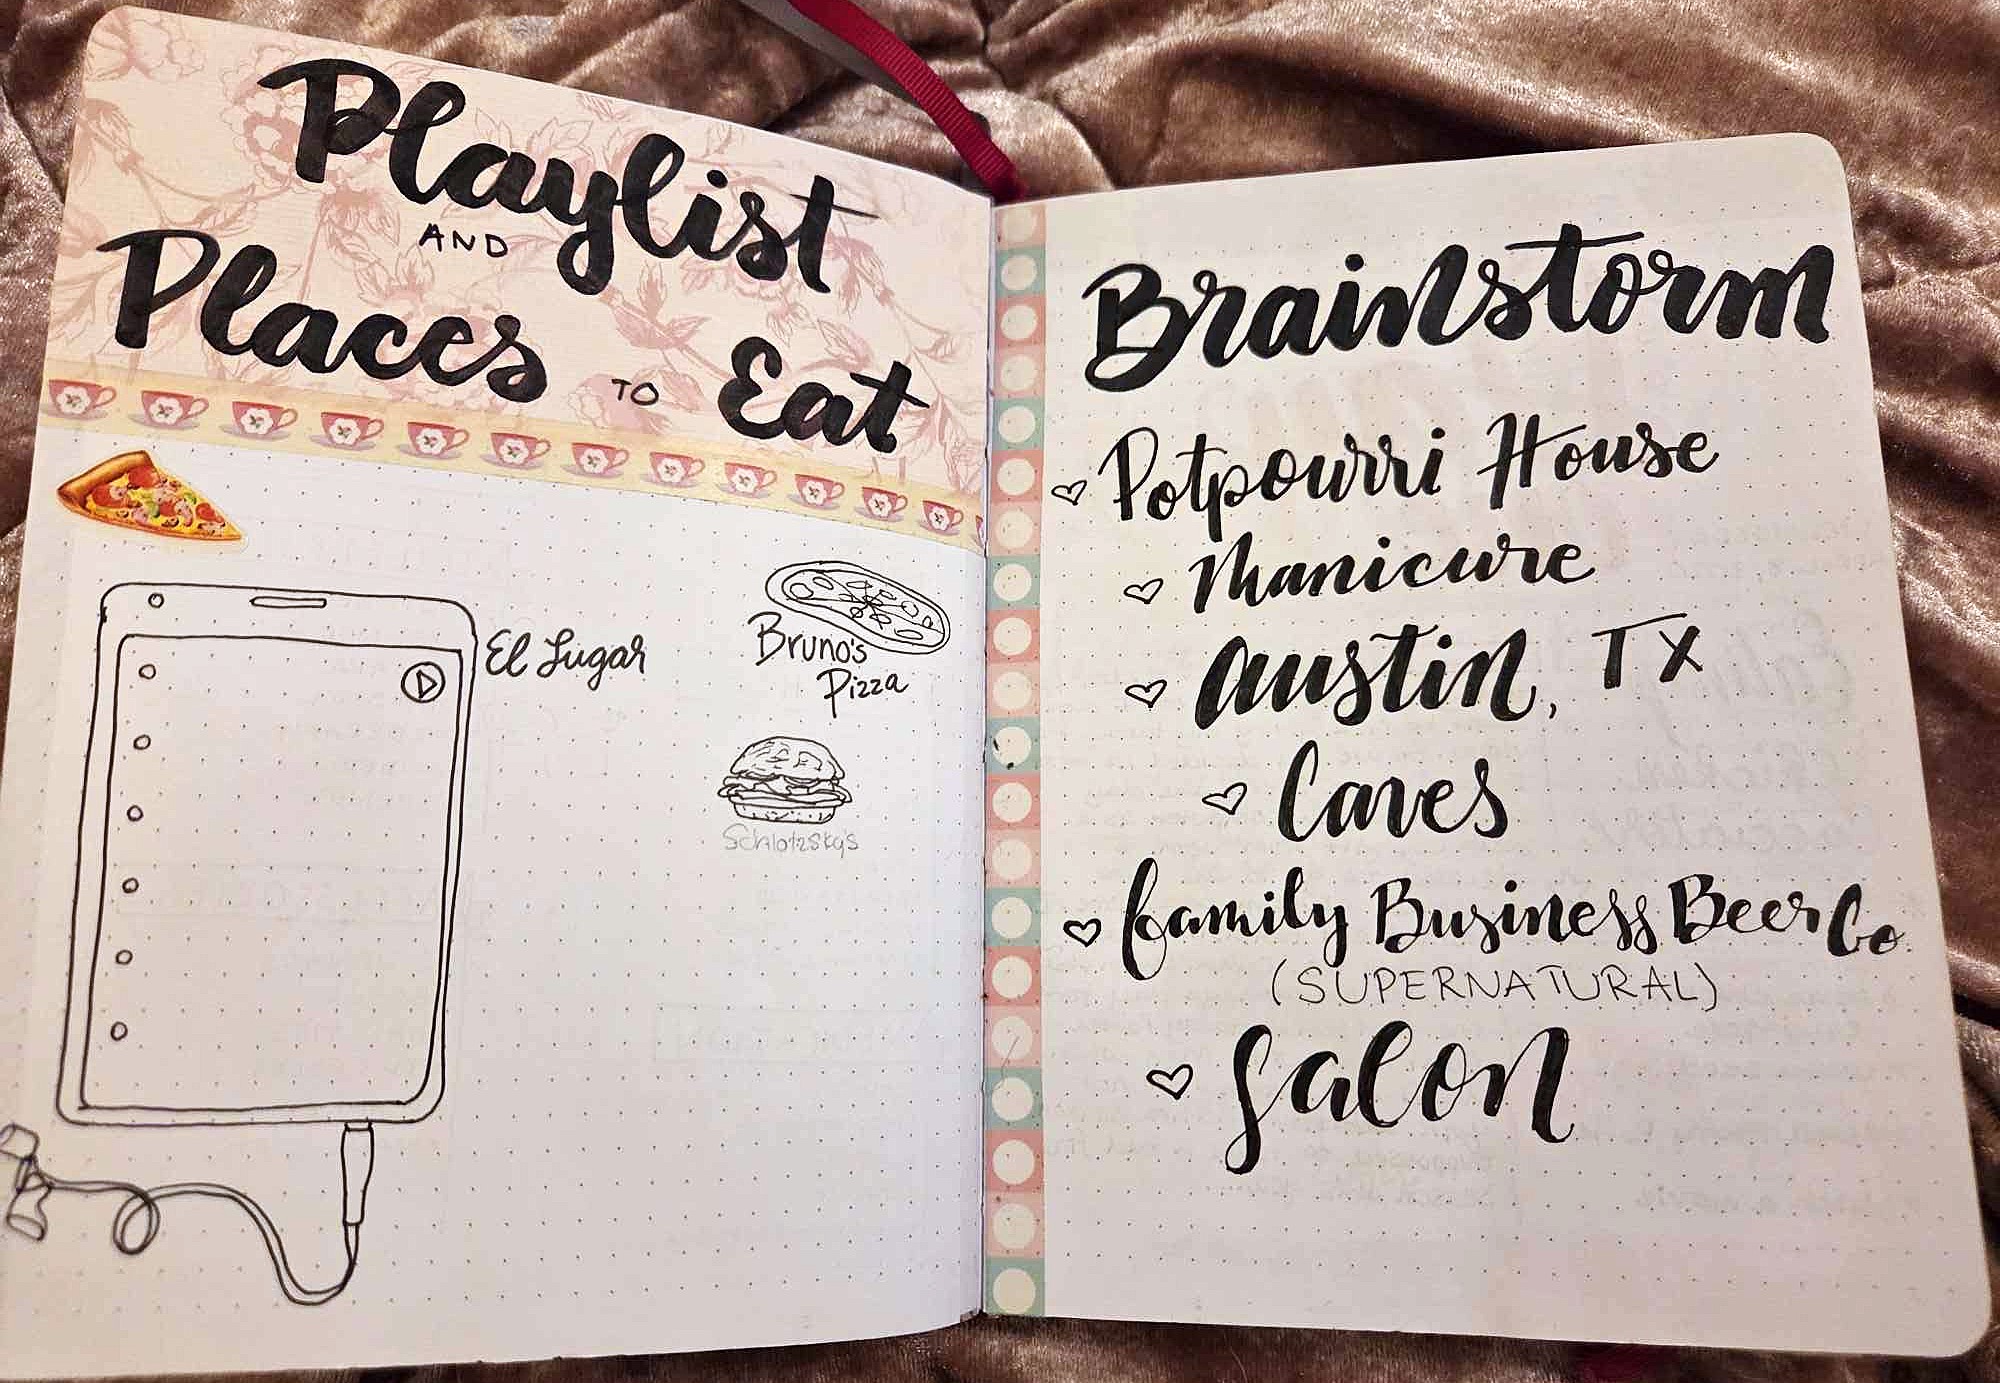 Playlist
AND
Places TO Eat
El Lugar
Bruno's
Pizza
Schlotzskys
Brainstorm
Potpourri House
Manicure
Austin, TX
Caves
Family Business Beer Co.
(SUPERNATURAL)
Salon